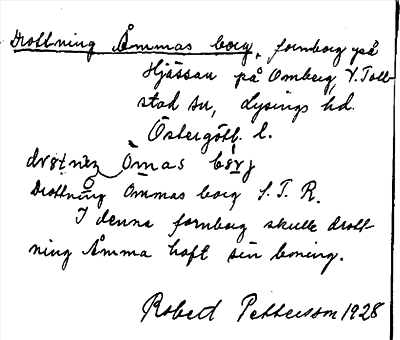 Drottning Åmmas borg, fornborg på
Hjässan på Omberg, V. Toll-
stad sn, Lysings hd.
Östergötl. l.
Ömas
Drottning Ommas borg S. T. R.
I denna fornborg skulle drott-
ning Åmma haft sin boning.
Robert Pettersson 1928